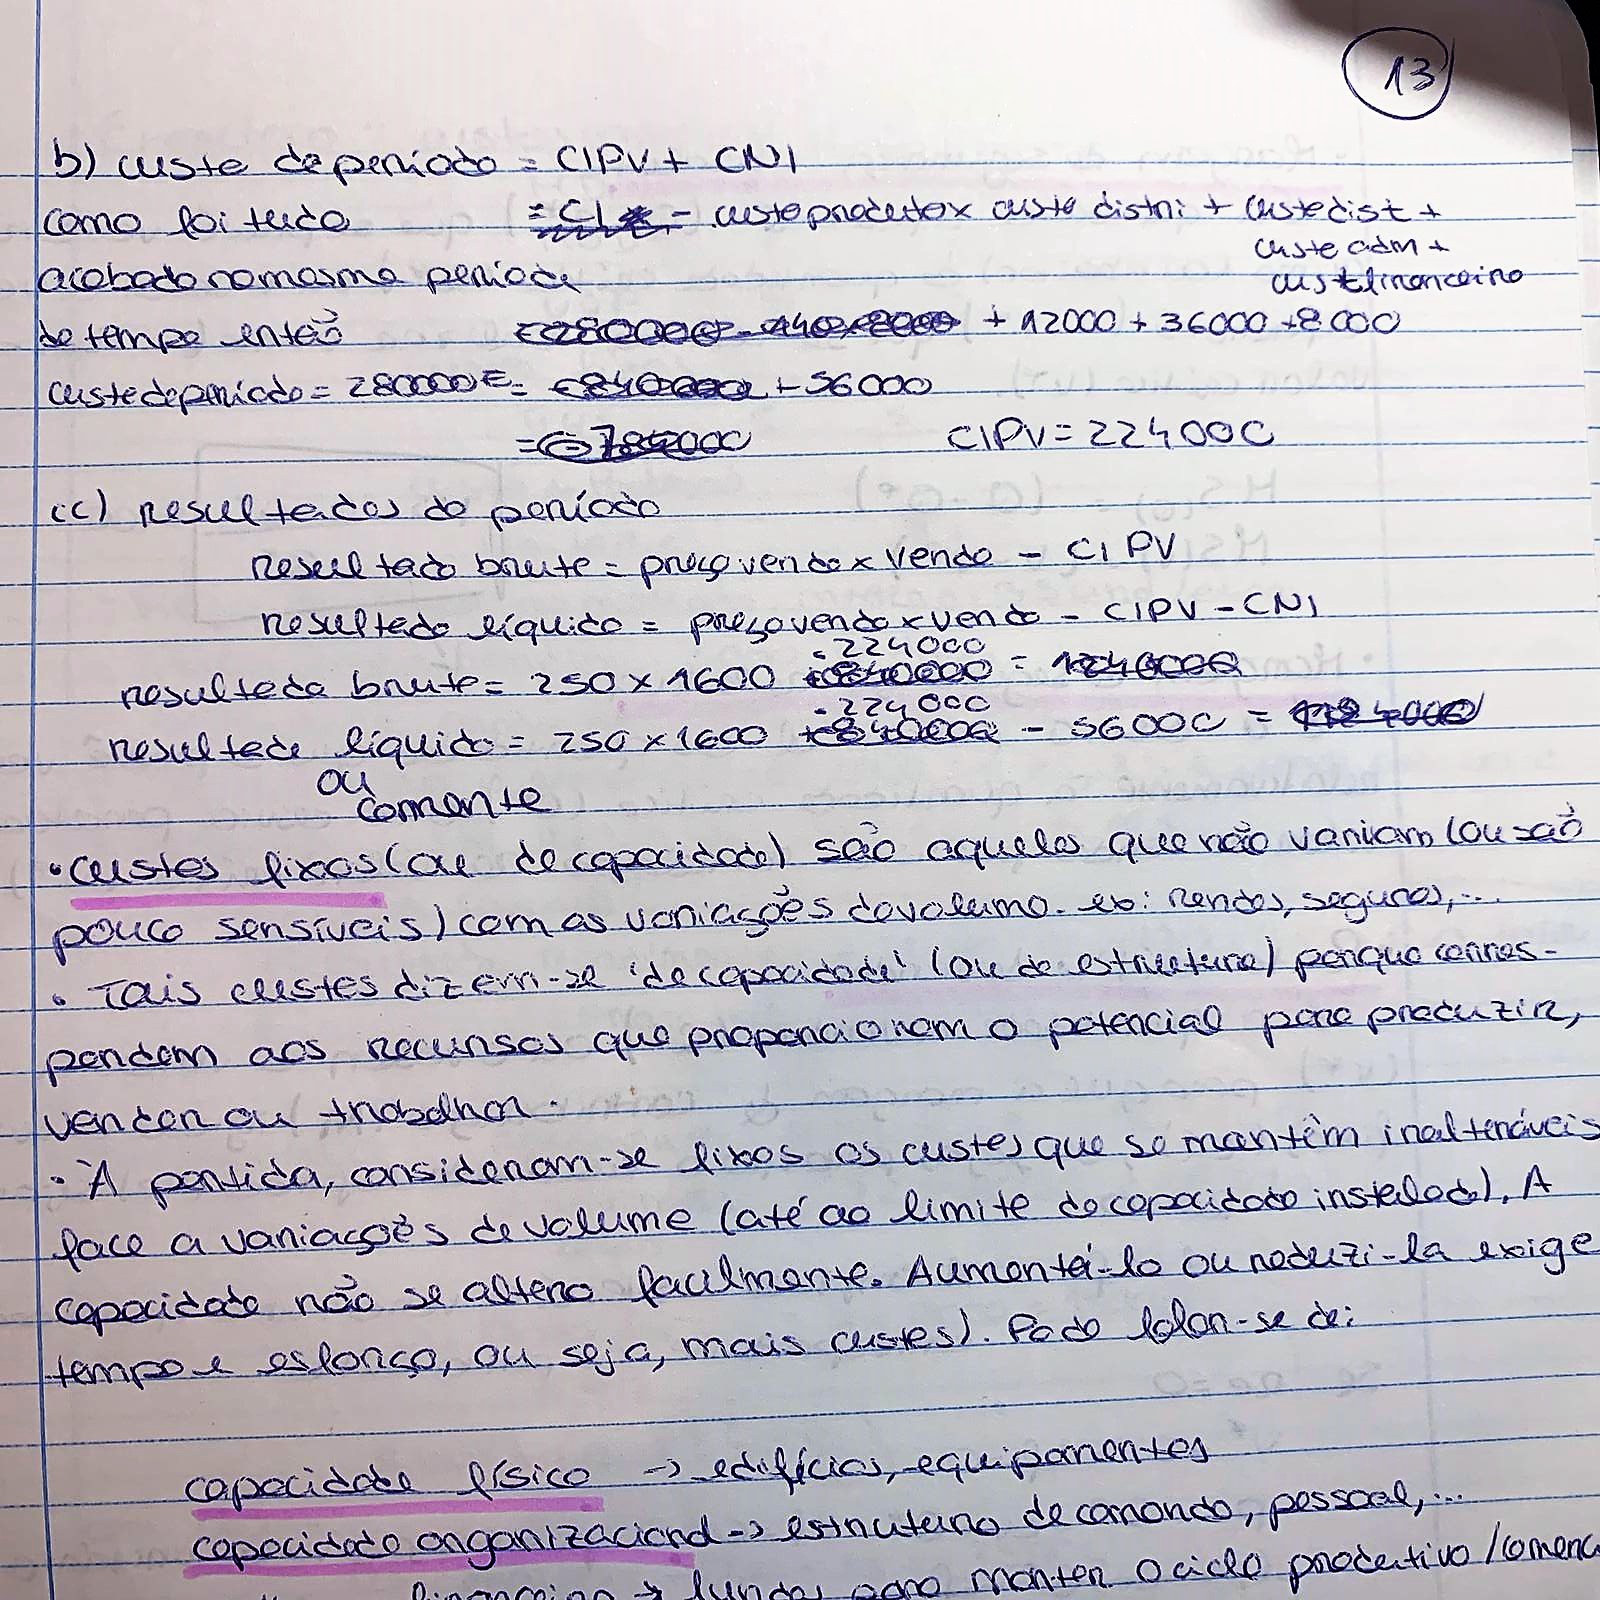 13
b) custo do período = CIPV + CNI
como foi tudo = CI - custo produto x custo distri + custo dist +
custo adm +
acabado no mesmo período cust financeiro
de tempo então + 12000 + 36000 + 8000
custo do período = 280000€ = + 56000
= CIPV = 224000
(c) resultados do período
resultado bruto = preço venda x venda - CIPV
resultado líquido = preço venda x venda - CIPV - CNI
- 224000
resultado bruto = 250 x 1600 =
- 224000
resultado líquido = 250 x 1600 - 56000 =
ou
corrente
• custos fixos (ou de capacidade) são aqueles que não variam (ou são
pouco sensíveis) com as variações do volume. ex: rendas, seguros,...
• Tais custos dizem-se 'de capacidade' (ou de estrutura) porque corres-
pondem aos recursos que proporcionam o potencial para produzir,
vender ou trabalhar.
• À partida, consideram-se fixos os custos que se mantêm inalteráveis
face a variações de volume (até ao limite da capacidade instalada). A
capacidade não se altera facilmente. Aumentá-la ou reduzi-la exige
tempo e esforço, ou seja, mais custos). Pode falar-se de:
capacidade física -> edifícios, equipamentos
capacidade organizacional -> estrutura de comando, pessoal,...
financeira -> fundos para manter o ciclo produtivo /comerc